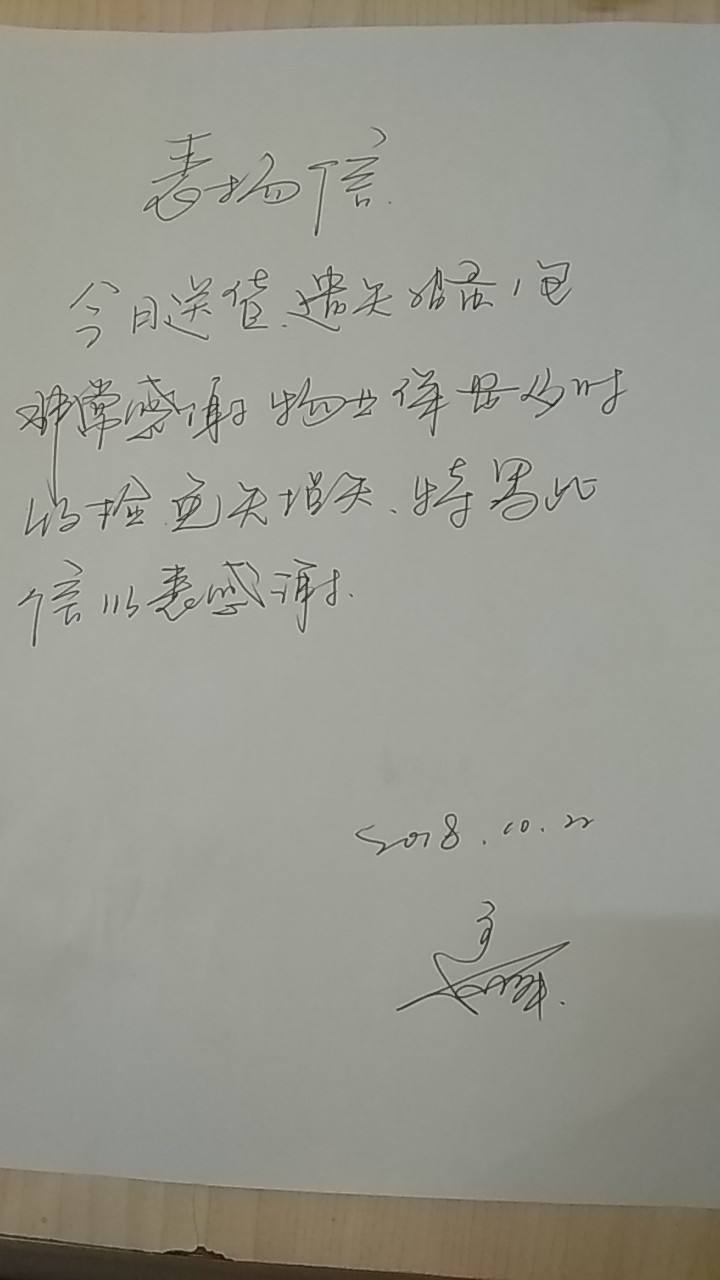 表扬信
今日送货、遗失鸡蛋1包
非常感谢物业保安及时
的捡
损失、特写此
信以表感谢.
2018.10.22